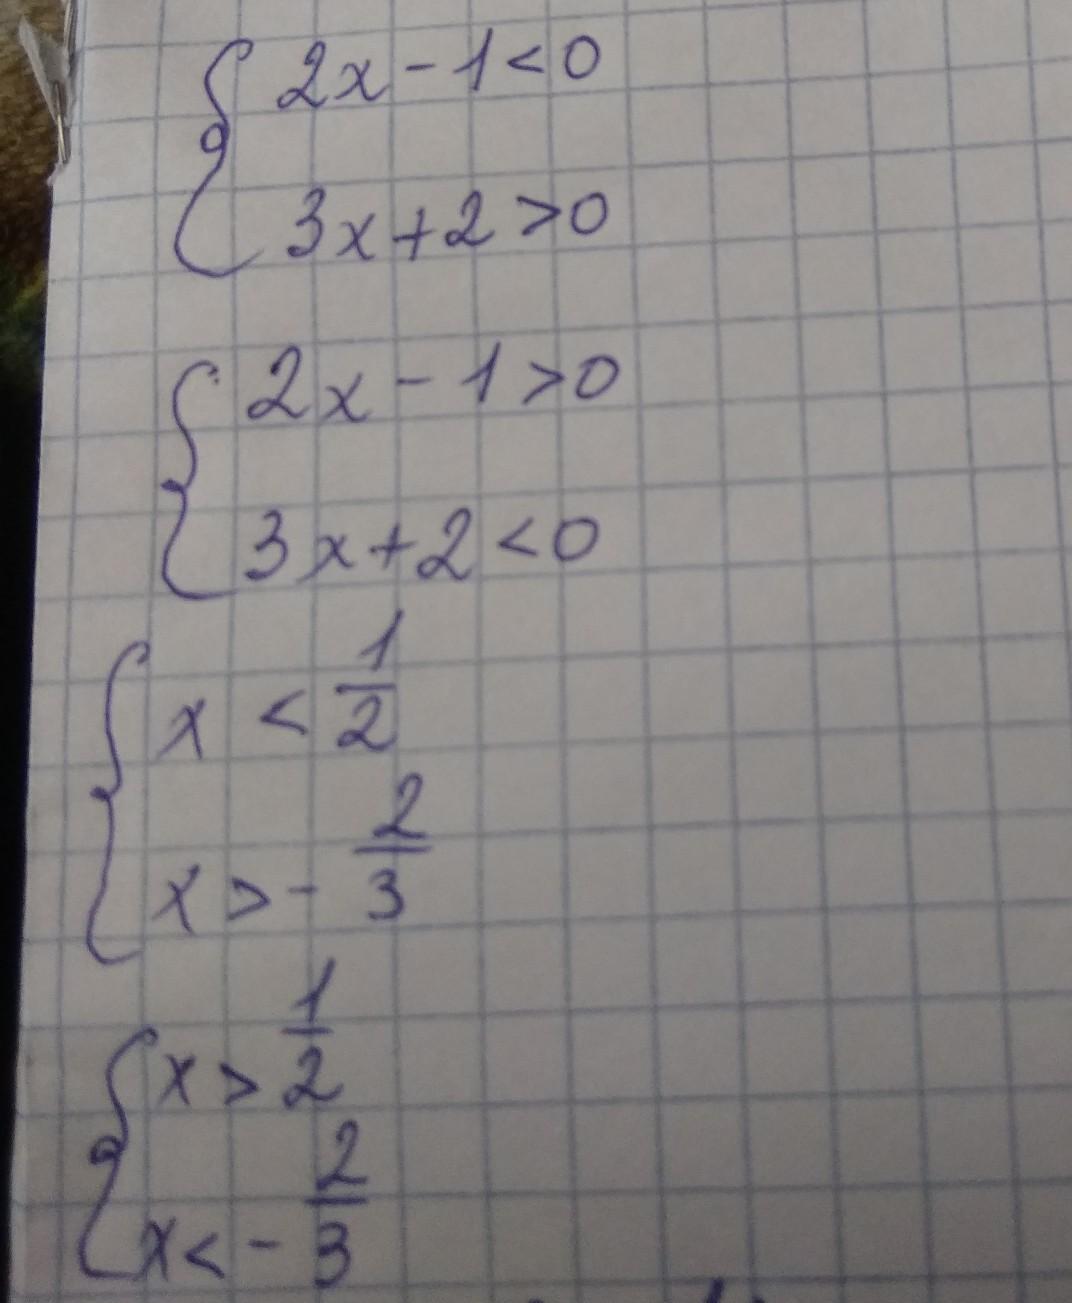 { 2x - 1 < 0
3x + 2 > 0
{ 2x - 1 > 0
3x + 2 < 0
{ x < 1/2
x > - 2/3
{ x > 1/2
x < - 2/3